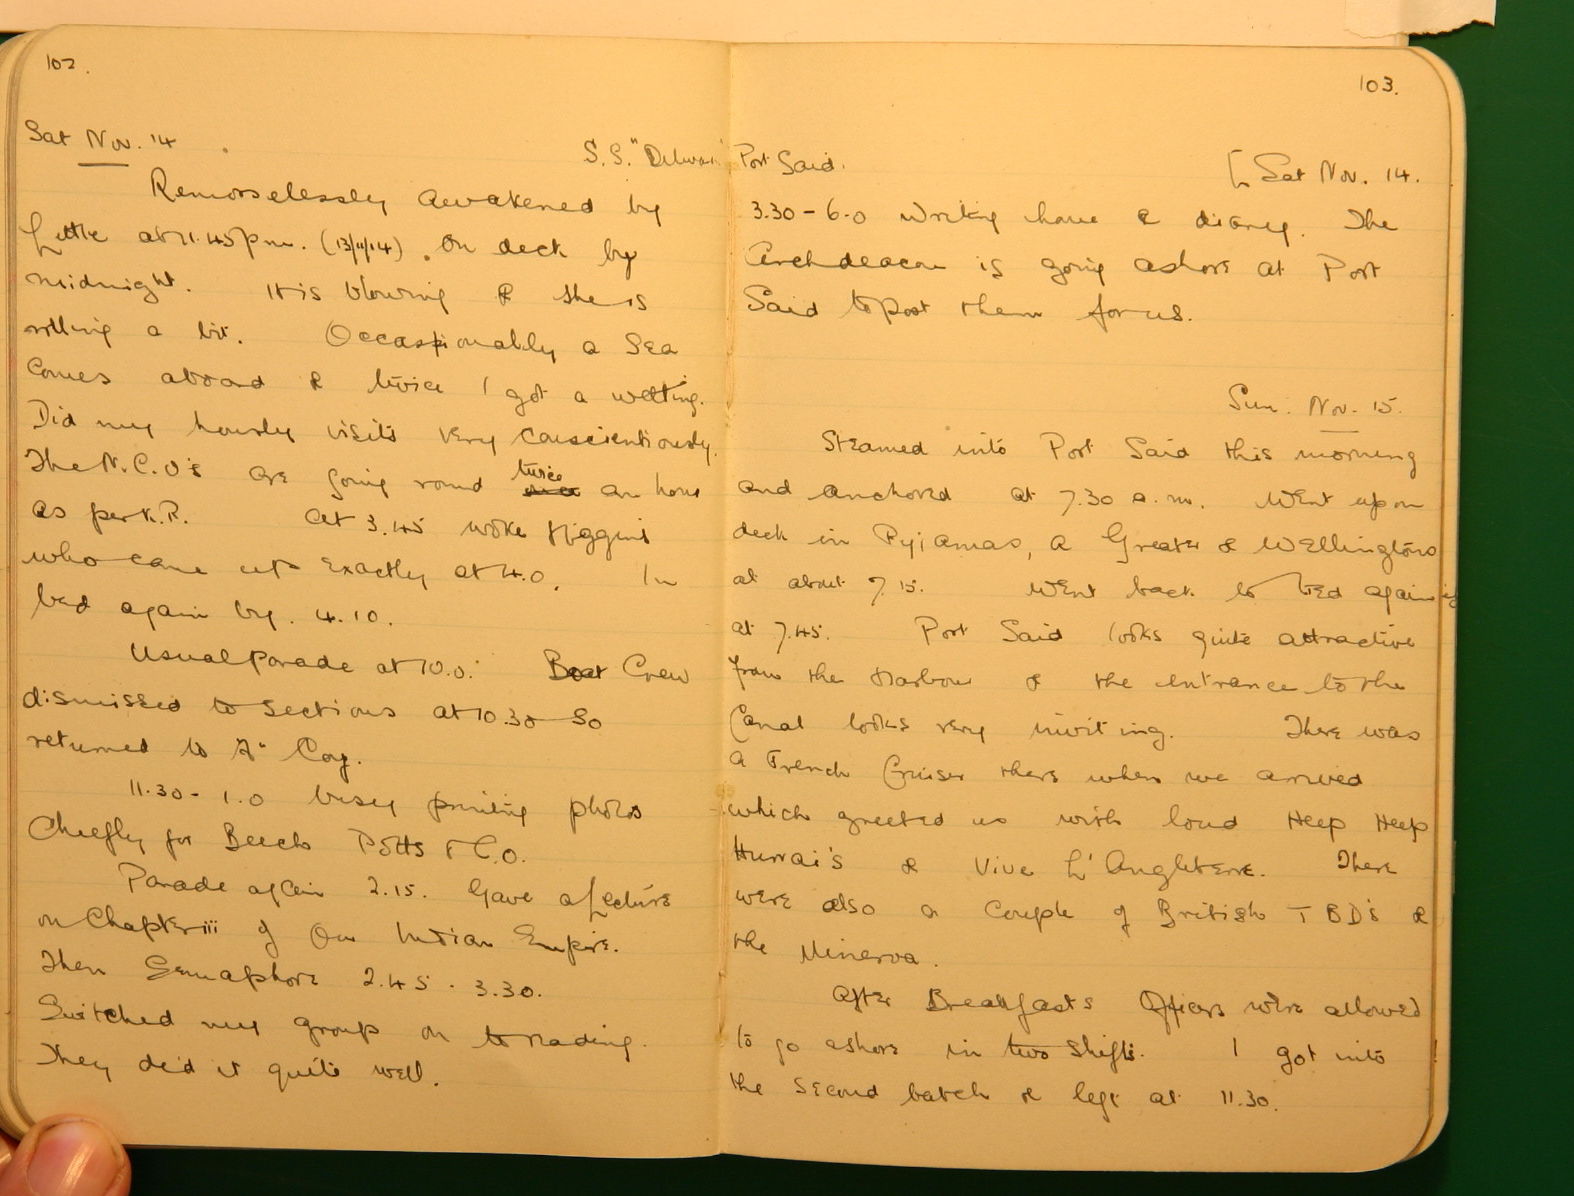 102.
Sat Nov. 14
S.S. "Dilwara"
Remorselessly awakened by
Little at 11.45 pm. (13/11/14). On deck by
midnight. It is blowing & she is
rolling a bit. Occasionally a sea
comes aboard & twice I got a wetting.
Did my hourly visits very conscientiously.
The N.C.O's are going round twice an hour
as per K.R. At 3.45 woke Higgins
who came up exactly at 4.0. In
bed again by 4.10.
Usual Parade at 10.0. Boat Crew
dismissed to Sections at 10.30 so
returned to A Coy.
11.30 - 1.0 busy printing photos
Chiefly for Beech Potts & Co.
Parade again 2.15. Gave a Lecture
on Chapter iii of Our Indian Empire.
Then Semaphore 2.45 - 3.30.
Switched my group on to reading.
They did it quite well.
103.
Port Said.
[Sat Nov. 14.
3.30 - 6.0 Writing home & diary. The
Archdeacon is going ashore at Port
Said to post them for us.
Sun. Nov. 15.
Steamed into Port Said this morning
and anchored at 7.30 a.m. Went up on
deck in Pyjamas, a Greater & Wellingtons
at about 7.15. Went back to bed again
at 7.45. Port Said looks quite attractive
from the Harbour & the entrance to the
Canal looks very inviting. There was
a French Cruiser there when we arrived
which greeted us with loud Heep Heep
Hurrai's & Vive L'Angleterre. There
were also a couple of British TBD's &
the Minerva.
After Breakfasts Officers were allowed
to go ashore in two shifts. I got into
the second batch & left at 11.30.